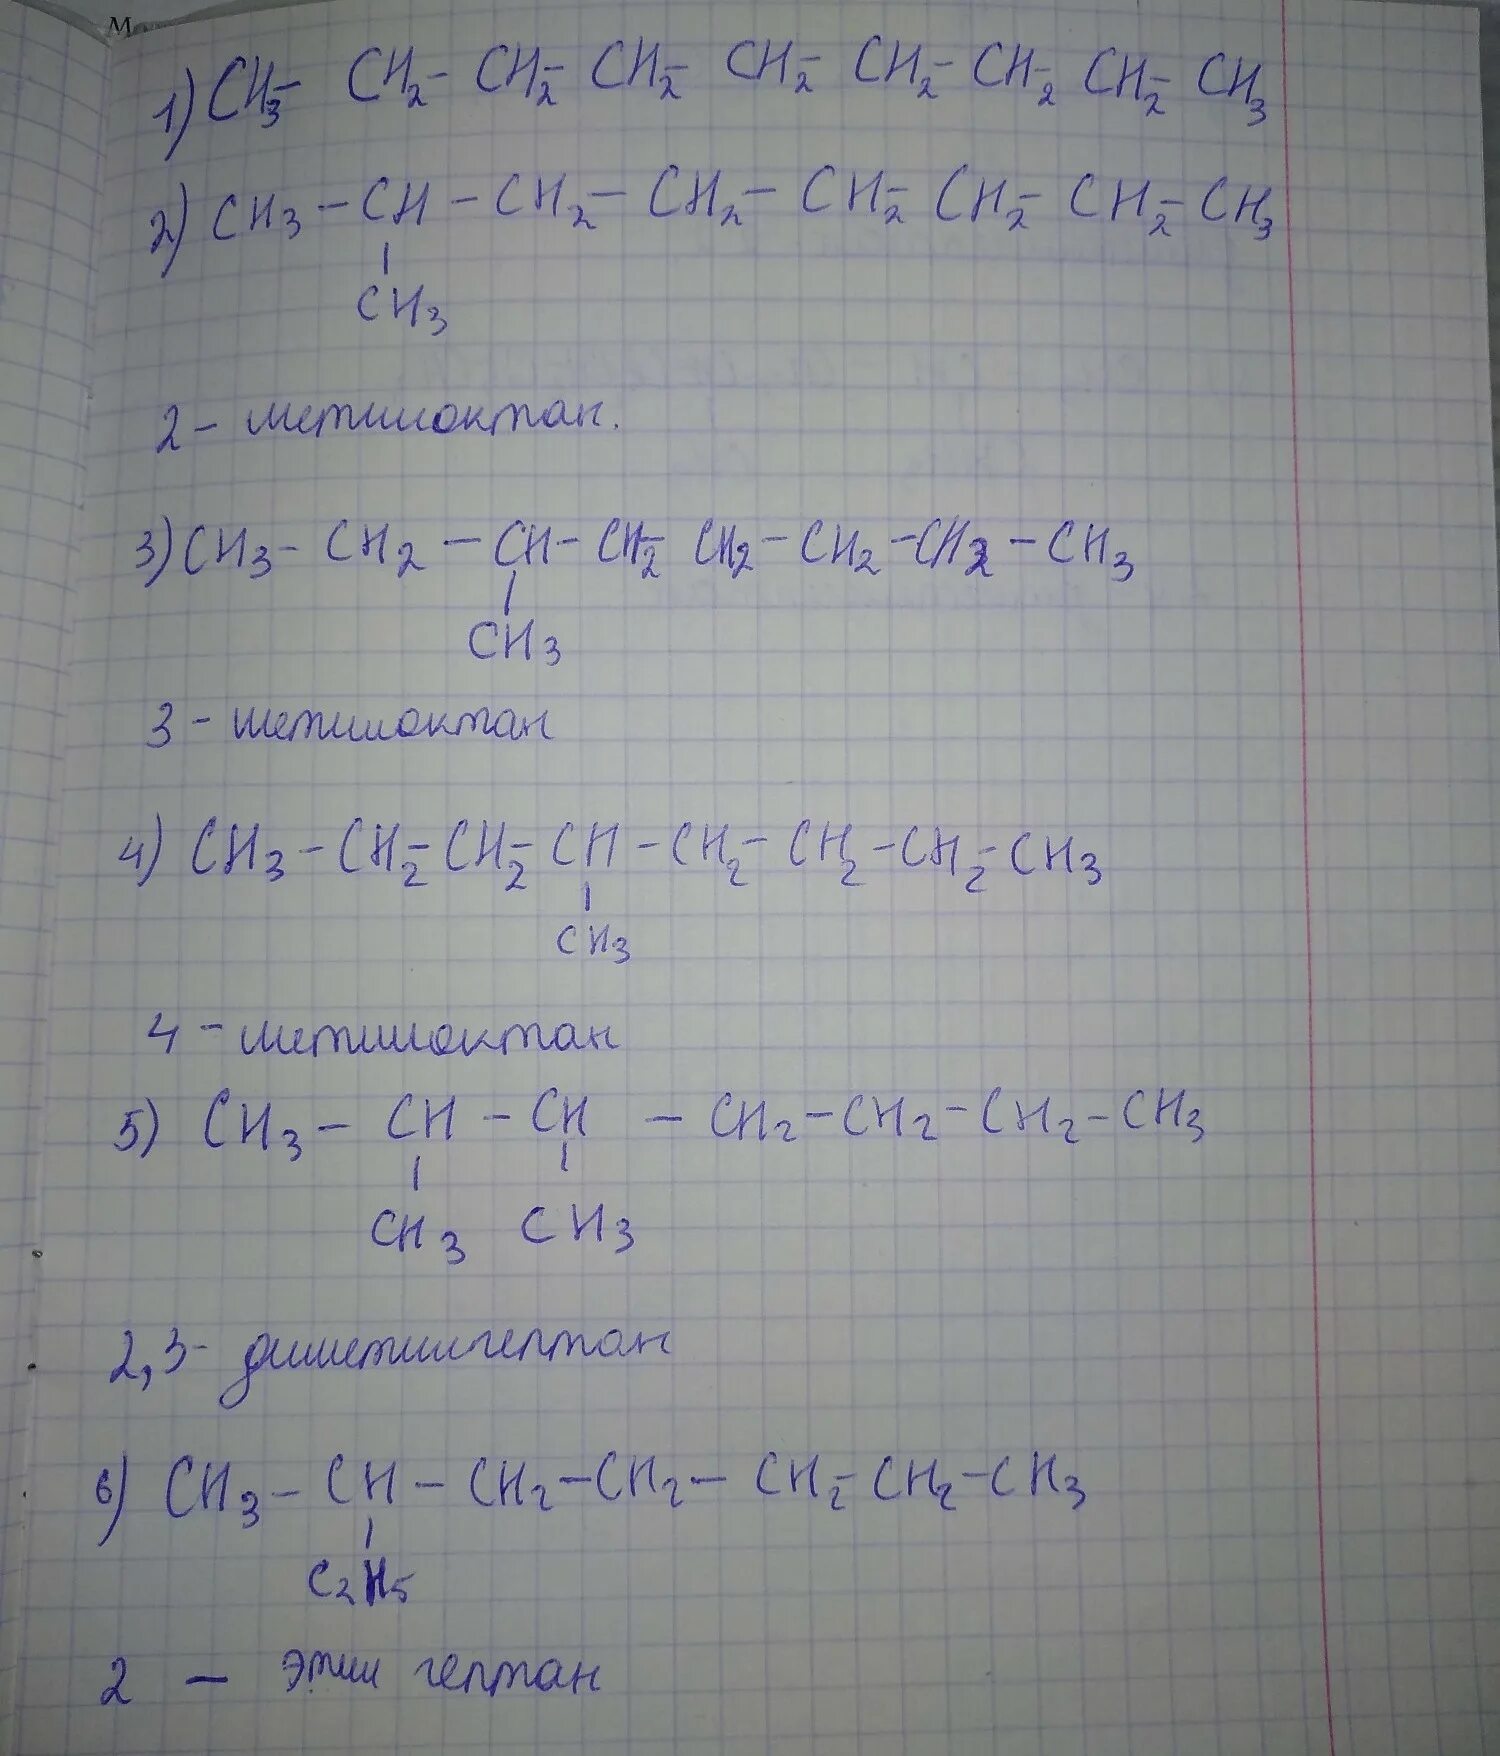 М
1) CH3- CH2- CH2- CH2- CH2- CH2- CH2- CH2- CH3
2) CH3 - CH - CH2 - CH2 - CH2- CH2- CH2- CH3
|
CH3
2- метилоктан.
3) CH3- CH2 - CH- CH2- CH2- CH2 - CH2 - CH3
|
CH3
3- метилоктан
4) CH3 - CH2- CH2- CH - CH2- CH2 - CH2- CH3
|
CH3
4- метилоктан
5) CH3 - CH - CH - CH2 - CH2 - CH2 - CH3
| |
CH3 CH3
2,3- диметилгептан
6) CH3 - CH - CH2 - CH2 - CH2- CH2 - CH3
|
C2H5
2 - этил гептан